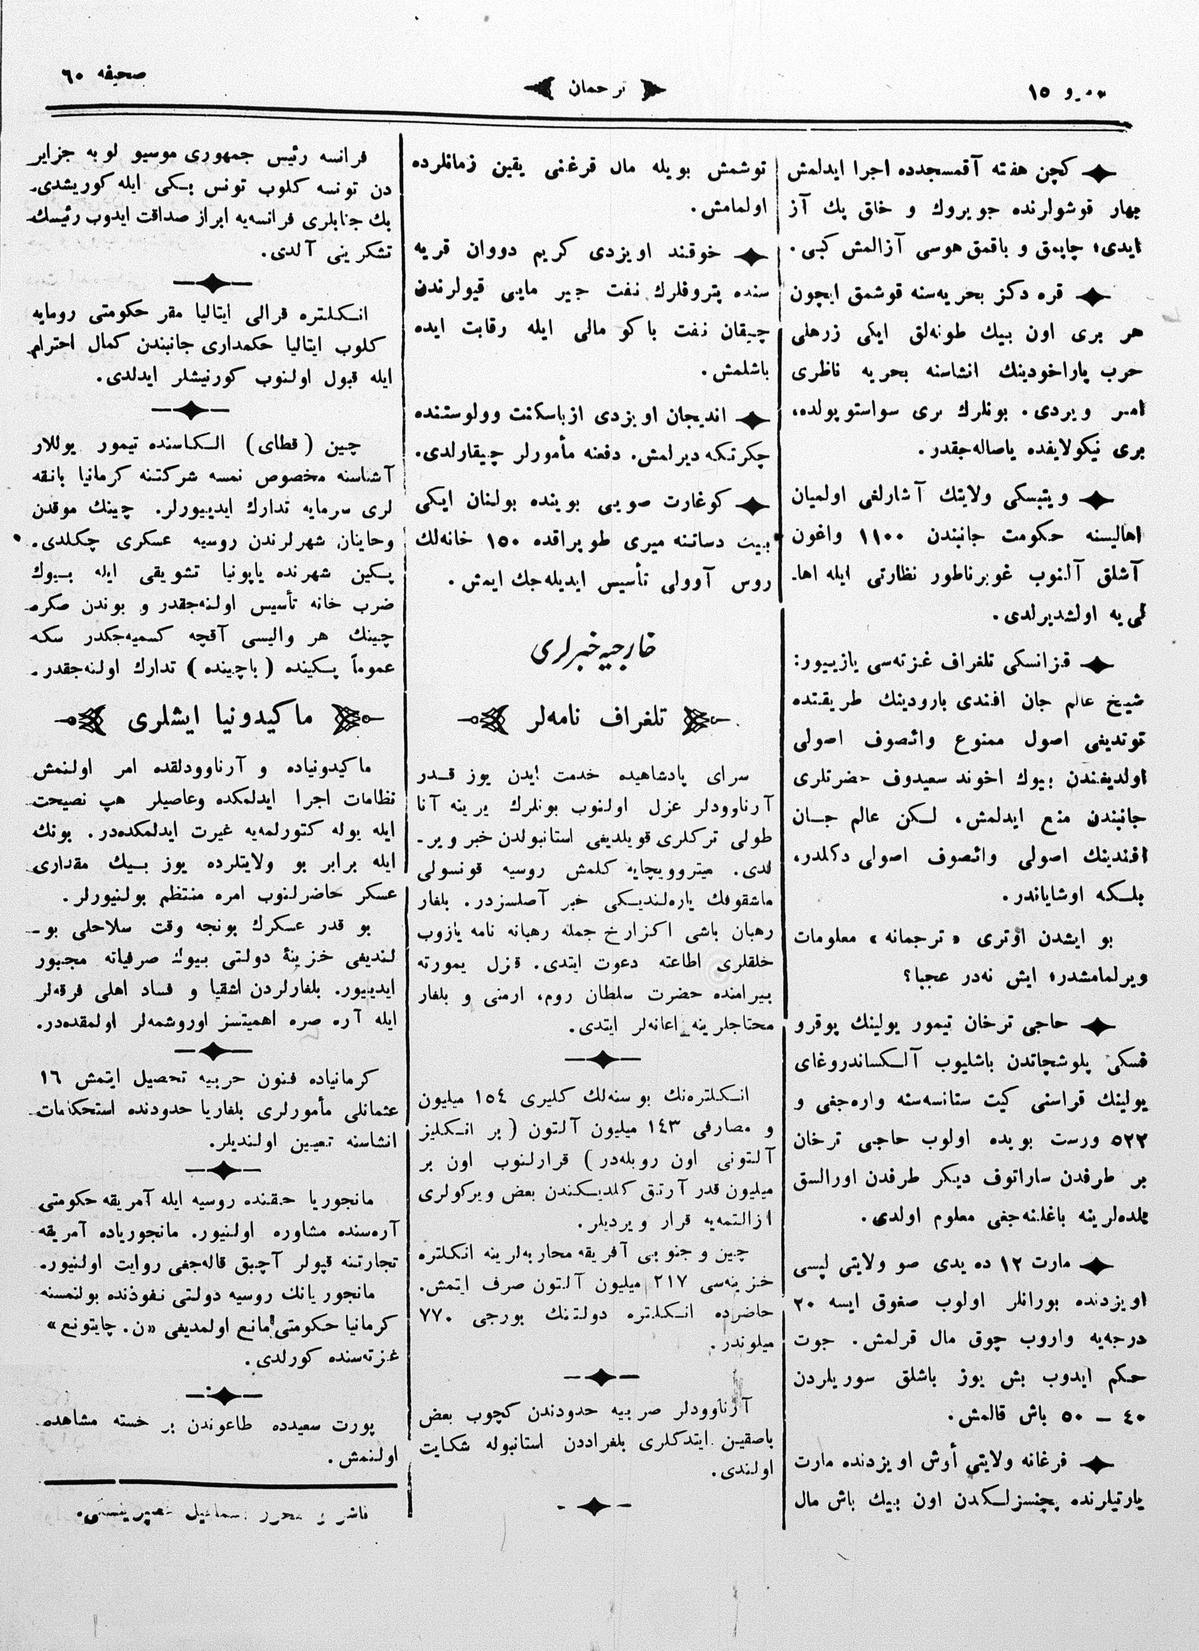 نومرو ١٥
ترجمان
صحیفه ٦٠
كچن هفته آقمسجدده اجرا ایدلمش
بهار قوشولرنده جویروك و خاق یك آز
ایدی؛ چاپمق و باقمق هوسی آزالمش كبی.
قره دكز بحریه‌سنه قوشمق ایچون
هر بری اون بیك طونه‌لق ایكی زرهلی
حرب پاراخودینك انشاسنه بحریه ناظری
امر ویردی. بونلرك بری سواستوپولده،
بری نیكولایفده یاصاله‌جقدر.
ویتبسكی ولایتك آشارلغی اولمیان
اهالیسنه حكومت جانبندن ١١٠٠ واغون
آشلق آلنوب غوبرناطور نظارتی ایله اها-
لی‌یه اولشدیرلدی.
قزانسكی تلغراف غزته‌سی یازییور:
شیخ عالم جان افندی بارودینك طریقتده
توتدیغی اصول ممنوع وائصوف اصولی
اولدیغندن بیوك اخوند سعیدوف حضرتلری
جانبندن منع ایدلمش، لكن عالم جان
افندینك اصولی وائصوف اصولی دكلدر،
بلكه اوشایاندر.
بو ایشدن اوتری «ترجمانه» معلومات
ویرلمامشدر؛ ایش نه‌در عجبا؟
حاجی ترخان تیمور یولینك پوقرو
فسكی پلوشچاتدن باشلیوب آلكساندروغای
یولینك قراسنی كیت ستانسه‌سنه واره‌جغی و
٥٢٢ ورست بویده اولوب حاجی ترخان
بر طرفدن ساراتوف دیكر طرفدن اورالسق
بلده‌لرینه باغلنه‌جغی معلوم اولدی.
مارت ١٢ ده یدی صو ولایتی لپسی
اویزدنده بورانلر اولوب صغوق ایسه ٢٠
درجه‌یه واروب چوق مال قرلمش. جوت
حكم ایدوب بش یوز باشلق سوریلردن
٤٠ — ٥٠ باش قالمش.
فرغانه ولایتی أوش اویزدنده مارت
یارتیلرنده پچنسزلكدن اون بیك باش مال
توشمش بویله مال قرغنی یقین زمانلرده
اولمامش.
خوقند اویزدی كریم دووان قریه
سنده پتروفلرك نفت جیر مایی قیولرندن
چیقان نفت باكو مالی ایله رقابت ایده
باشلمش.
اندیجان اویزدی ازباسكنت وولوستنده
چكرتكه دیرلمش. دفعنه مأمورلر چیقارلدی.
كوغارت صویی بوینده بولنان ایكی
بیك دساتنه میری طوپراقده ١٥٠ خانه‌لك
روس آوولی تأسیس ایدیله‌جك ایمش.
خارجیه خبرلری
تلغراف نامه‌لر
سرای پادشاهیده خدمت ایدن یوز قدر
آرناوودلر عزل اولنوب بونلرك یرینه آنا
طولی تركلری قویلدیغی استانبولدن خبر ویر-
لدی. میتروویچایه كلمش روسیه قونسولی
ماشقوفك یاره‌لندیكی خبر آصلسزدر. بلغار
رهبان باشی اكزارخ جمله رهبانه نامه یازوب
خلقلری اطاعته دعوت ایتدی. قزل یمورته
بیرامنده حضرت سلطان روم، ارمنی و بلغار
محتاجلرینه اعانه‌لر ایتدی.
انكلتره‌نك بو سنه‌لك كلیری ١٥٤ میلیون
و مصارفی ١٤٣ میلیون آلتون (بر انكلیز
آلتونی اون روبله‌در) قرارلنوب اون بر
میلیون قدر آرتق كلدیكندن بعض ویركولری
ازالتمه‌یه قرار ویردیلر.
چین و جنوبی آفریقه محاربه‌لرینه انكلتره
خزینه‌سی ٢١٧ میلیون آلتون صرف ایتمش.
حاضرده انكلتره دولتنك بورجی ٧٧٠
میلوندر.
آرناوودلر صربیه حدودندن كچوب بعض
باصقین ایتدكلری بلغراددن استانبوله شكایت
اولندی.
فرانسه رئیس جمهوری موسیو لوبه جزایر
دن تونسه كلوب تونس بكی ایله كوریشدی.
بك جنابلری فرانسه‌یه ابراز صداقت ایدوب رئیسك
تشكرینی آلدی.
انكلتره قرالی ایتالیا مقر حكومتی رومایه
كلوب ایتالیا حكمداری جانبندن كمال احترام
ایله قبول اولنوب كورنیشلر ایدلدی.
چین (قطای) الكاسنده تیمور یوللار
آشناسنه مخصوص نمسه شركتنه كرمانیا بانقه
لری سرمایه تدارك ایدییورلر. چینك موقدن
وحاینان شهرلرندن روسیه عسكری چكلدی.
پكین شهرنده یاپونیا تشویقی ایله بیوك
ضرب خانه تأسیس اولنه‌جقدر و بوندن صكره
چینك هر والیسی آقچه كسمیه‌جكدر سكه
عموماً پكینده (باچینده) تدارك اولنه‌جقدر.
ماكیدونیا ایشلری
ماكیدونیاده و آرناوودلقده امر اولنمش
نظامات اجرا ایدلمكده وعاصیلر هپ نصیحت
ایله یوله كتورلمه‌یه غیرت ایدلمكده‌در. بونك
ایله برابر بو ولایتلرده یوز بیك مقداری
عسكر حاضرلنوب امره منتظم بولنیورلر.
بو قدر عسكرك بونجه وقت سلاحلی بو-
لندیغی خزینهٔ دولتی بیوك صرفیاته مجبور
ایدییور. بلغارلردن اشقیا و فساد اهلی فرقه‌لر
ایله آره صره اهمیتسز اوروشمه‌لر اولمقده‌در.
كرمانیاده فنون حربیه تحصیل ایتمش ١٦
عثمانلی مأمورلری بلغاریا حدودنده استحكامات
انشاسنه تعیین اولندیلر.
مانجوریا حقنده روسیه ایله آمریقه حكومتی
آره‌سنده مشاوره اولنیور. مانجوریاده آمریقه
تجارتنه قپولر آچیق قاله‌جغی روایت اولنیور.
مانجوریانك روسیه دولتی نفوذنده بولنمسنه
كرمانیا حكومتی مانع اولمدیغی «ن. چایتونغ»
غزته‌سنده كورلدی.
پورت سعیدده طاعوندن بر خسته مشاهده
اولنمش.
ناشر و محرر اسماعیل غصپرینسكی.